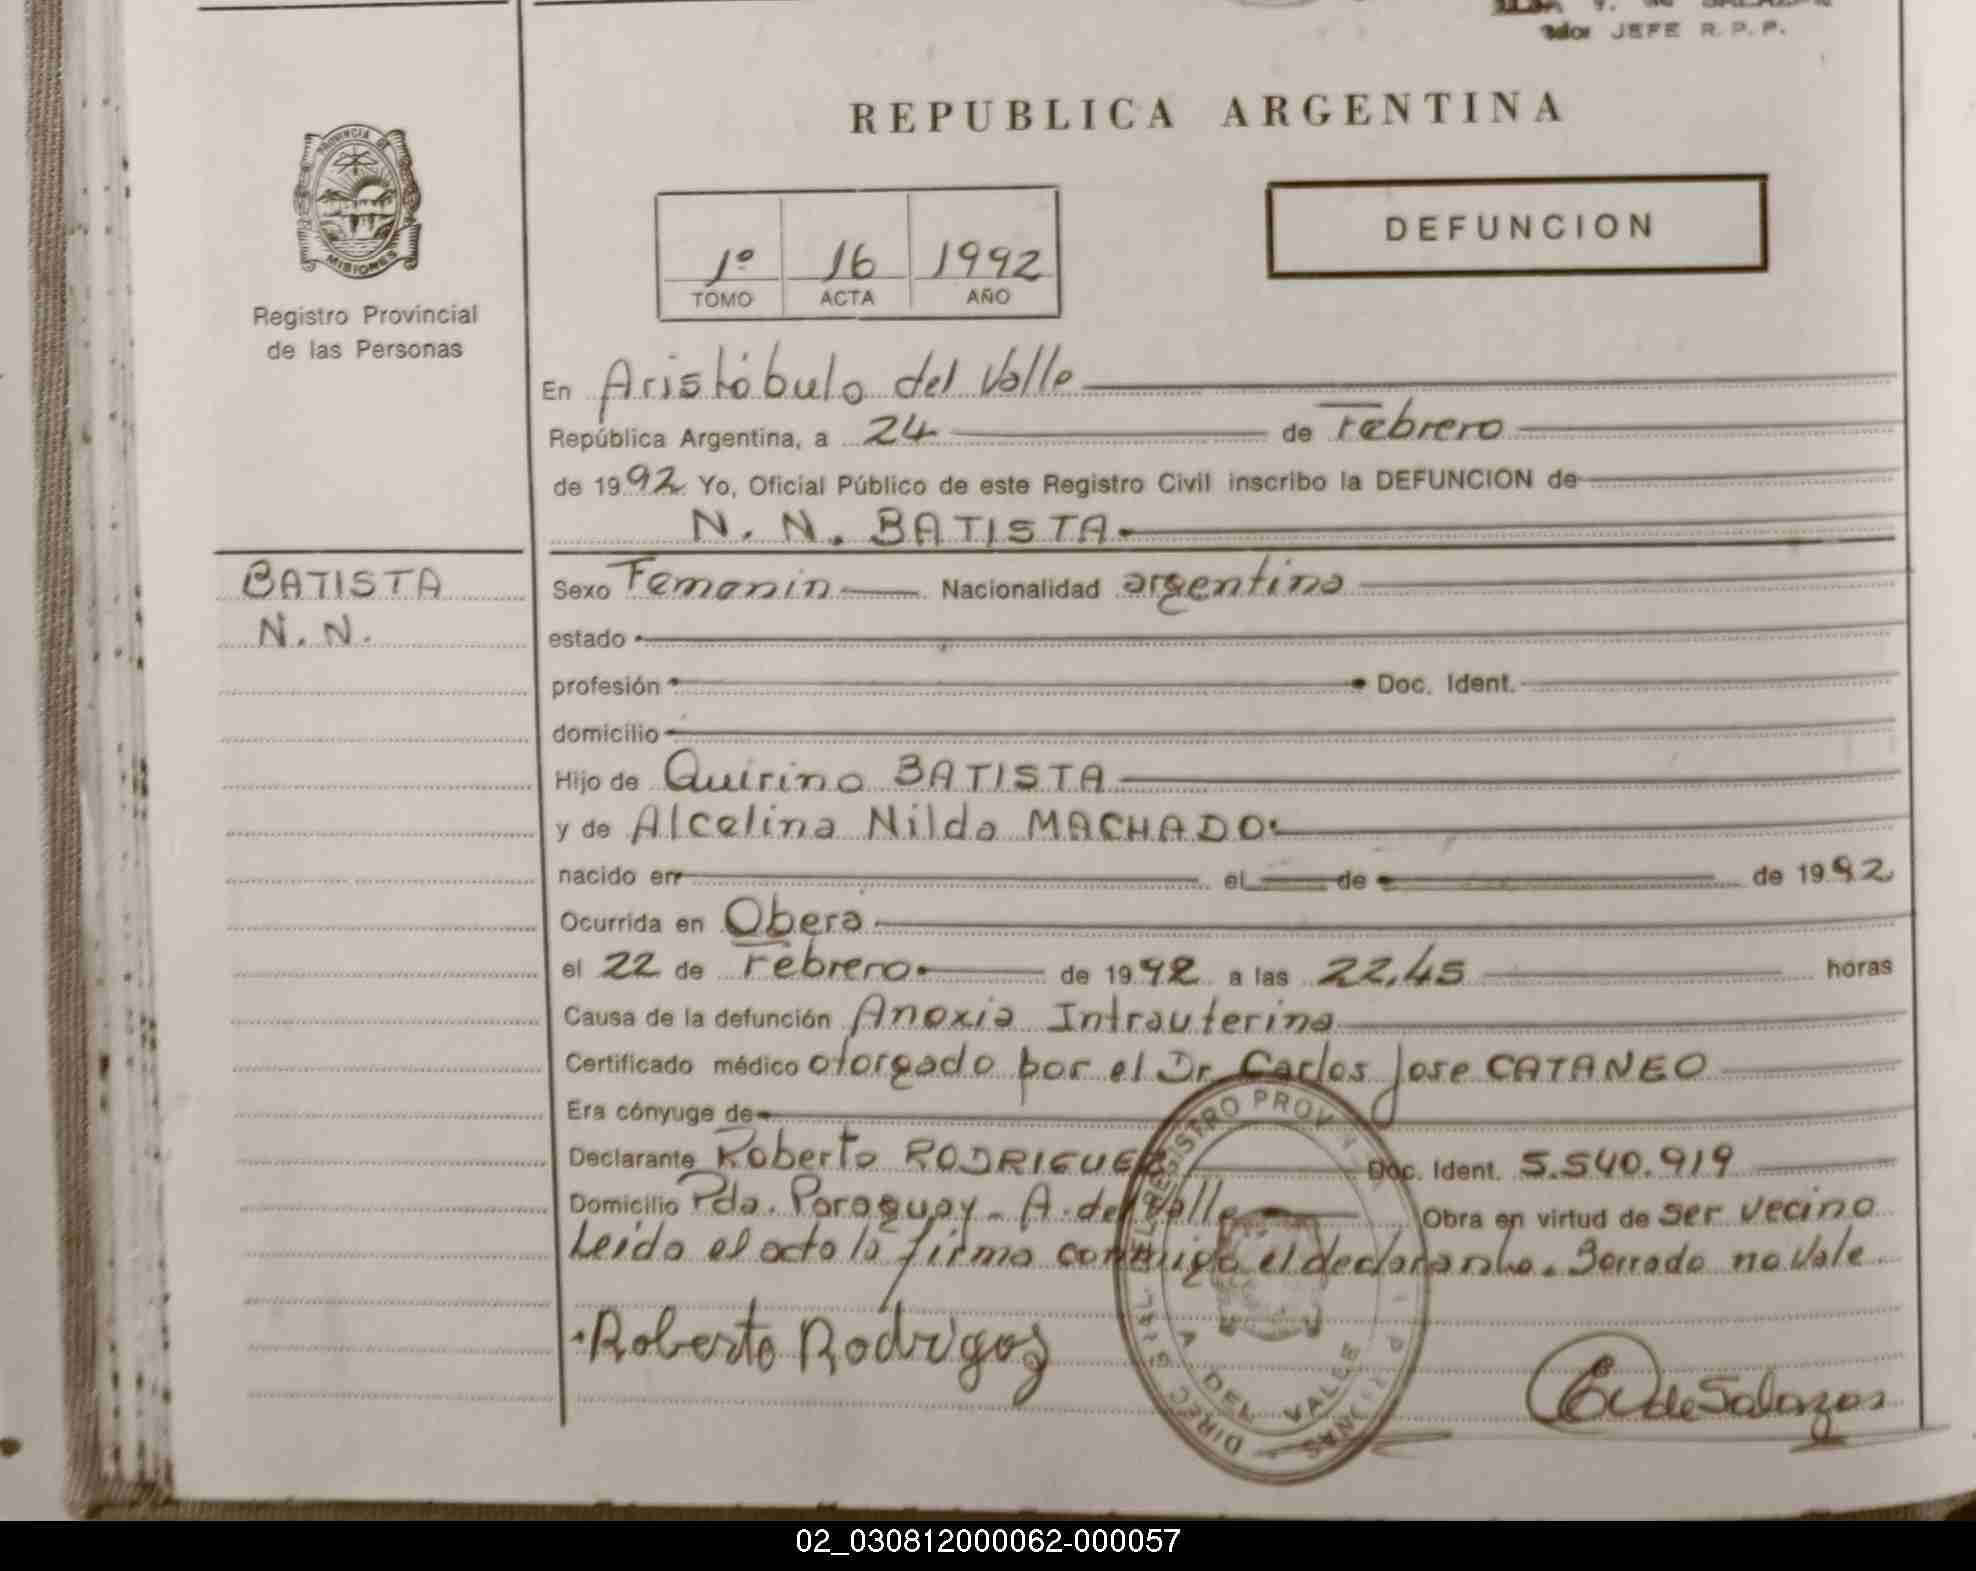 JEFE R. P. P.
REPUBLICA ARGENTINA
PROVINCIA DE
MISIONES
Registro Provincial
de las Personas
1º 16 1992
TOMO ACTA AÑO
DEFUNCION
En Aristóbulo del Valle
República Argentina, a 24 de Febrero
de 1992 Yo, Oficial Público de este Registro Civil inscribo la DEFUNCION de
N. N. BATISTA.
BATISTA
N. N.
Sexo Femenin Nacionalidad argentina
estado
profesión Doc. Ident.
domicilio
Hijo de Quirino BATISTA
y de Alcelina Nilda MACHADO.
nacido en el de de 1992
Ocurrida en Obera
el 22 de Febrero. de 1992 a las 22,45 horas
Causa de la defunción Anoxia Intrauterina
Certificado médico otorgado por el Dr Carlos Jose CATANEO
Era cónyuge de
Declarante Roberto RODRIGUEZ Doc. Ident. 5.540.919
Domicilio Pda. Paraguay - A. del Valle Obra en virtud de ser vecino
Leida el acta la firma conmigo el declarante. Borrado no vale
Roberto Rodrigos
de Salazar
A DEL VALLE
02_030812000062-000057